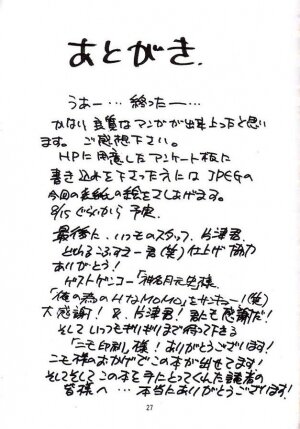 あとがき.
うあー…終ったー…
かなり良質なマンガが出来上ったと思い
ます。ご感想下さい。
HPに用意したアンケート板に
書き込みを下さった方には JPEGの
今回の表紙の絵をさしあげます。
8/15ぐらいから予定
最後に、いつものスタッフ、片津君、
君(笑)仕上げ協力
ありがとう!
ゲストゲンコー「椎名月元先様、
「俺の為のHなMOMO」をサンキュー!(笑)
大感謝! & 片津君!君にも感謝だ!
そしていつもギリギリまで待って下さる
「ニモ印刷」様!ありがとうございます!
ニモ様のおかげでこの本が出せてます!
そしてそしてこの本を手にとってくれた読者の
皆様へ…本当にありがとうございます!
27